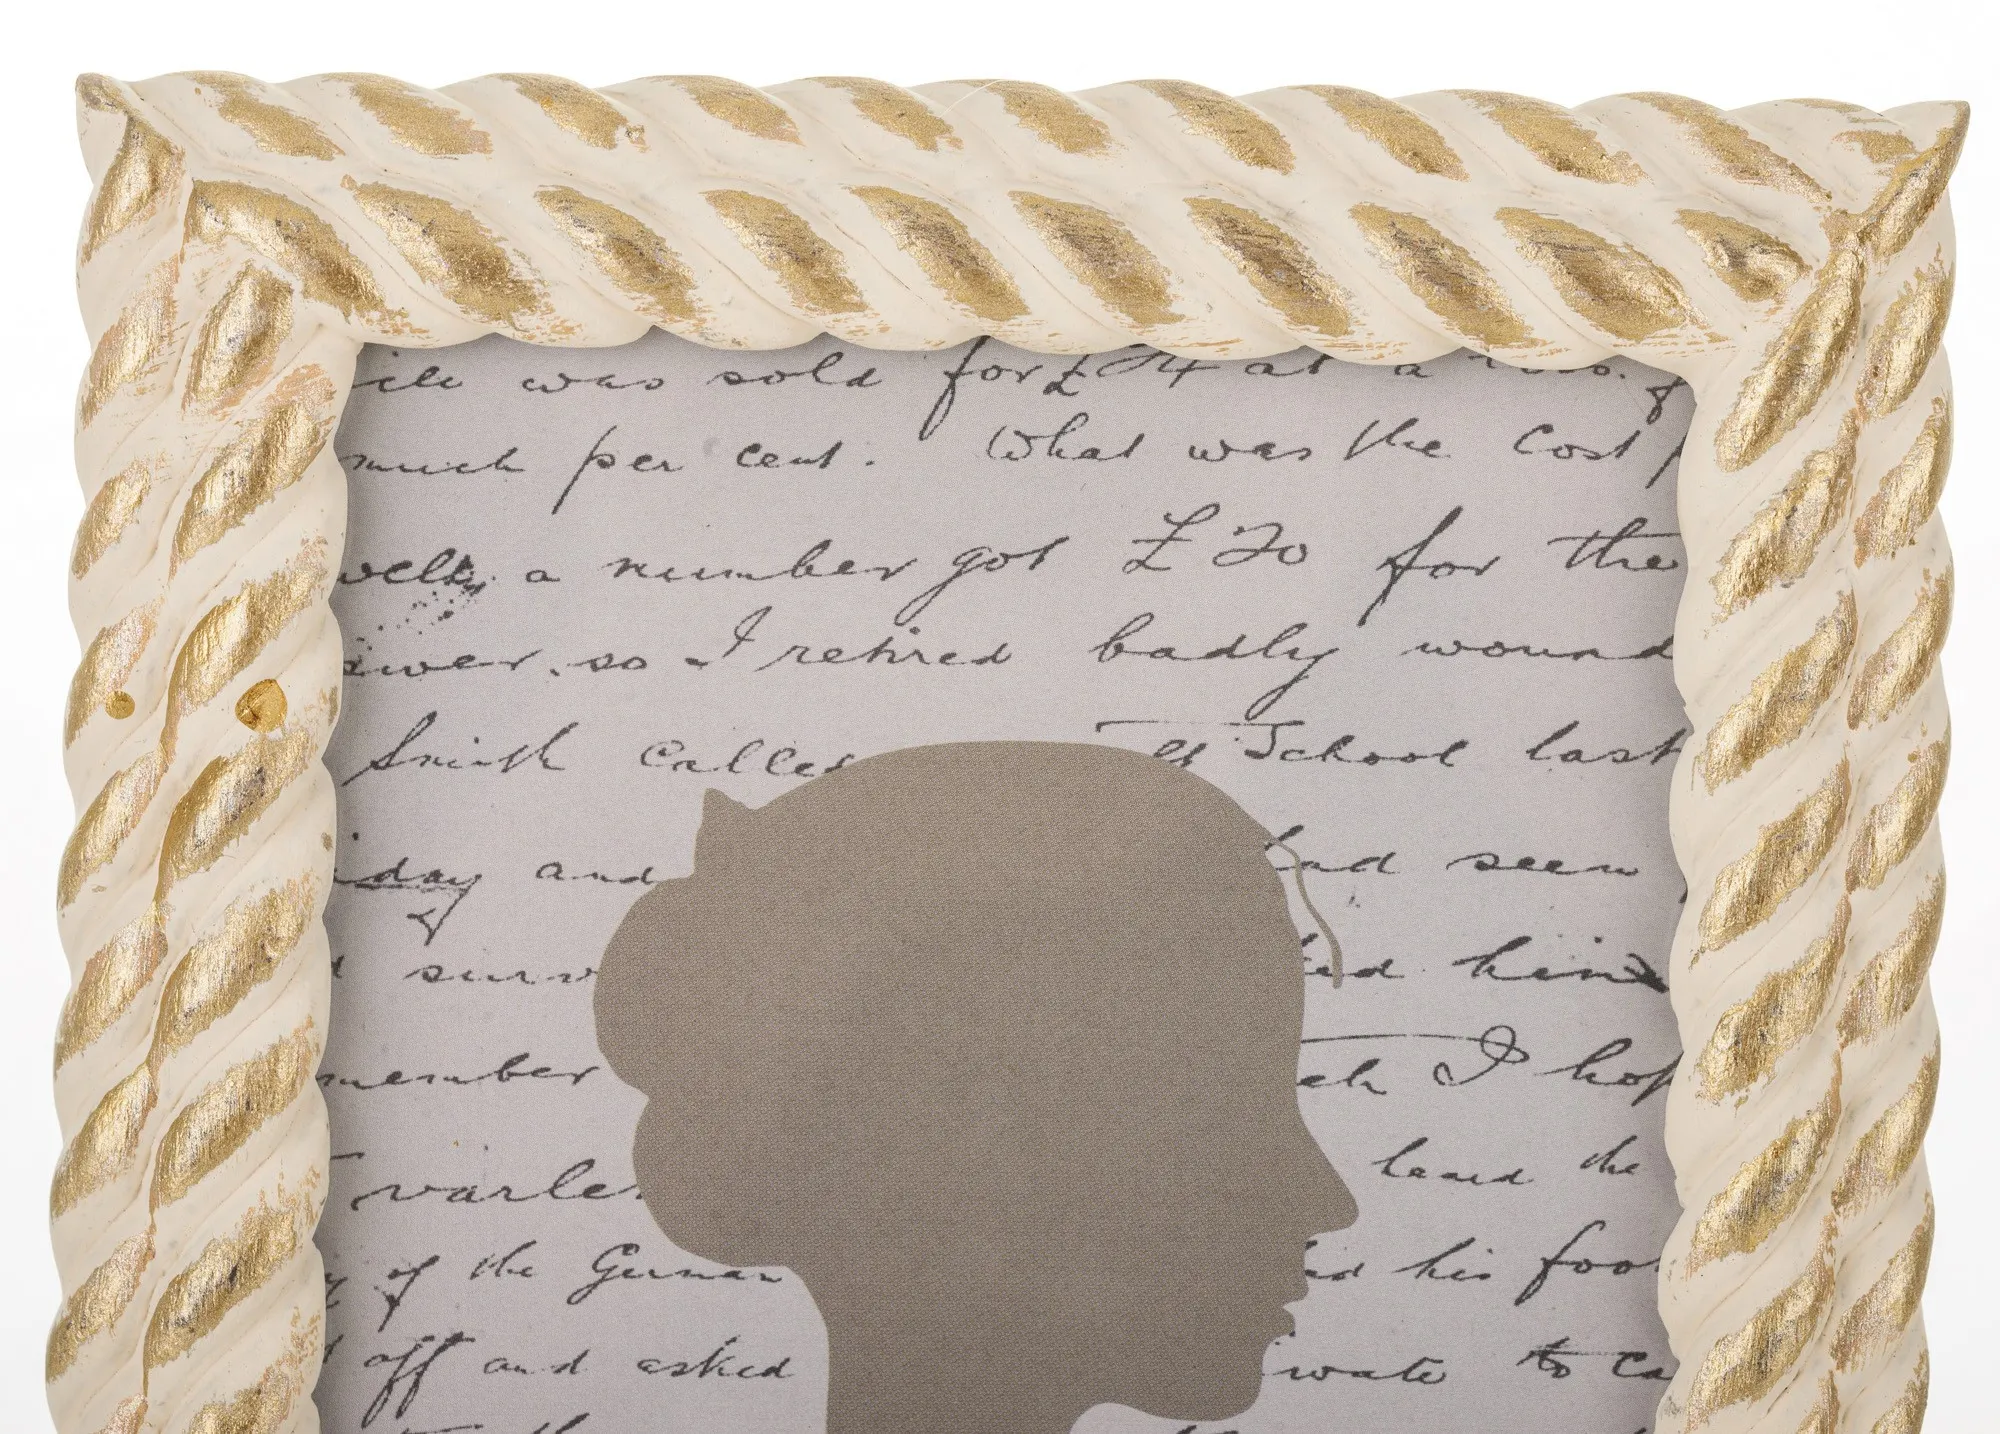 was sold for £ 4 at a
much per cent. What was the Cost
well, a number got £20 for the
so I retired badly wound
Smith called School last
day and had seen
surv ked him
member ch I hop
varle heard the
of the German his foo
off and asked to ca